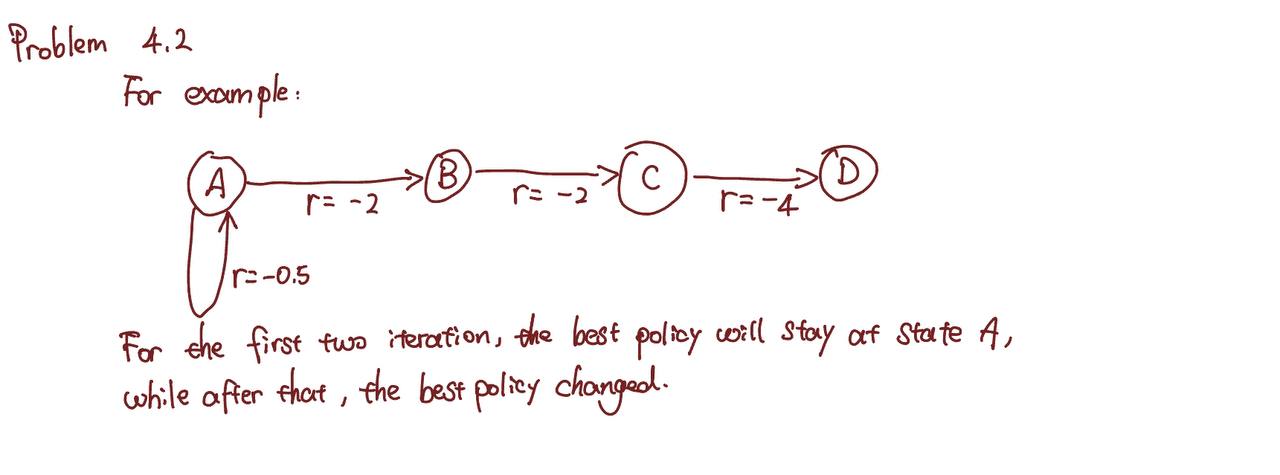 Problem 4.2
For example:
A
B
C
D
r= -2
r= -2
r= -4
r=-0.5
For the first two iteration, the best policy will stay at state A,
while after that, the best policy changed.